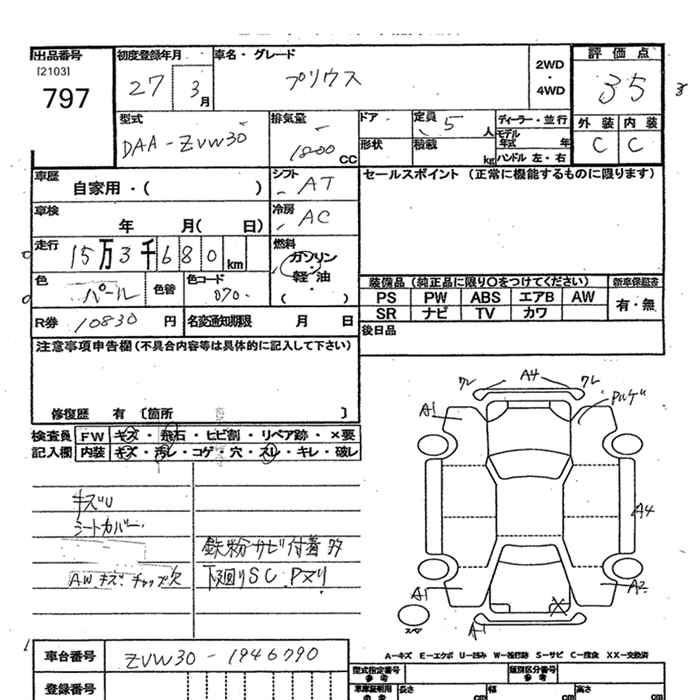 出品番号 初度登録年月 車名・グレード 2WD・4WD 評価点
[2103]
797 27 3月 プリウス 3.5 3
型式 排気量 ドア 定員 ディーラー・並行 外装 内装
DAA-ZVW30 1800CC 5人 モデル年式 年 C C
形状 積載 kg ハンドル 左・右
車歴 自家用・( ) シフト AT セールスポイント (正常に機能するものに限ります)
車検 年 月( 日) 冷房 AC
走行 15万3千680km 燃料 ガソリン・軽・油 ( )
色 パール 色替 色コード 070 装備品(純正品に限り○をつけてください) 新車保証書
PS PW ABS エアB AW 有・無
SR ナビ TV カワ
R券 10830円 名変通知期限 月 日 後日品
注意事項申告欄(不具合内容等は具体的に記入して下さい)
修復歴 有 〔箇所 〕
検査員 FW キズ・飛石・ヒビ割・リペア跡・×要
記入欄 内装 キズ・汚レ・コゲ・穴・スレ・キレ・破レ
キズU
シートカバー
鉄粉サビ付着
AWキズ・チップ欠 下廻りSC Pヌリ
クレ A4 クレ
A1
A4
A1 A2
スペア A1
A-キズ E-エクボ U-凹み W-波打跡 S-サビ C-腐食 XX-交換済
車台番号 ZVW30-1946790 型式指定番号 参考 類別区分番号 参考
登録番号 車庫証明用の参考 長さ cm 幅 cm 高さ cm